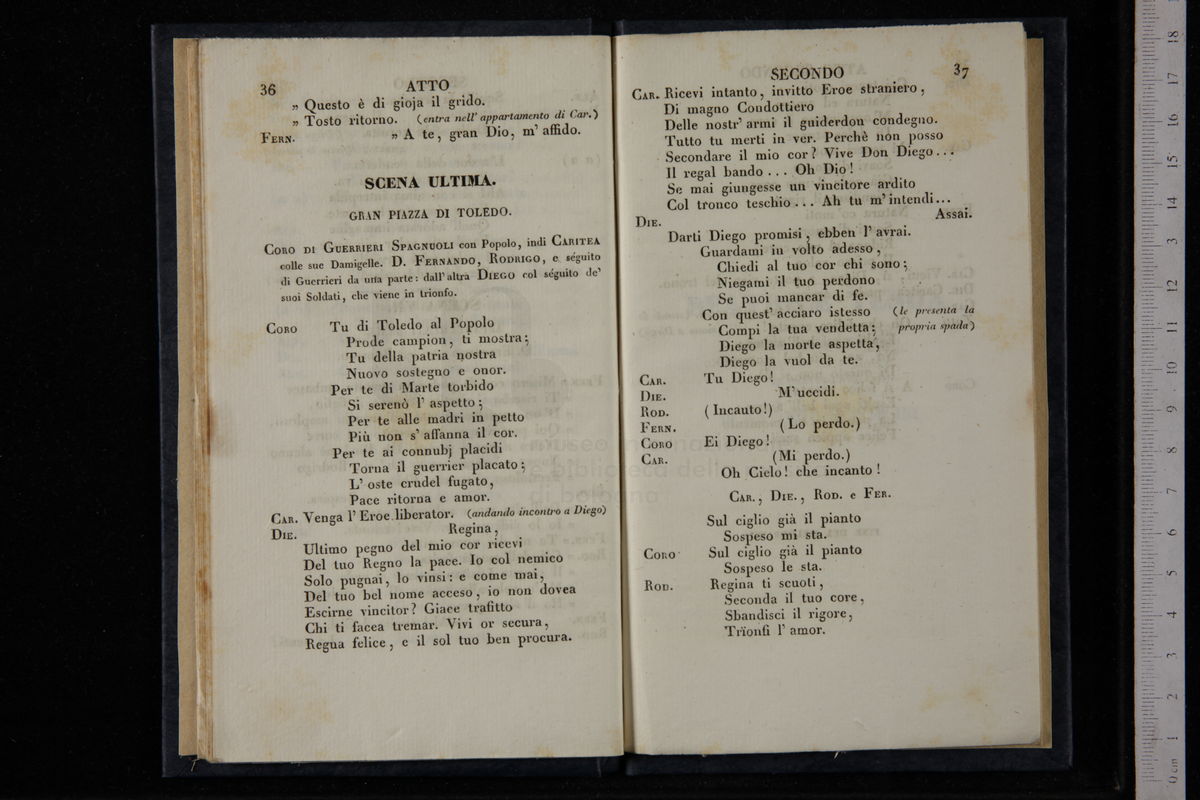 36
ATTO
„ Questo è di gioja il grido.
„ Tosto ritorno. (entra nell' appartamento di Car.)
FERN. „ A te, gran Dio, m' affido.
SCENA ULTIMA.
GRAN PIAZZA DI TOLEDO.
CORO DI GUERRIERI SPAGNUOLI con Popolo, indi CARITEA
colle sue Damigelle. D. FERNANDO, RODRIGO, e séguito
di Guerrieri da una parte: dall' altra DIEGO col séguito de'
suoi Soldati, che viene in trionfo.
CORO Tu di Toledo al Popolo
Prode campion, ti mostra;
Tu della patria nostra
Nuovo sostegno e onor.
Per te di Marte torbido
Si serenò l' aspetto;
Per te alle madri in petto
Più non s' affanna il cor.
Per te ai connubj placidi
Torna il guerrier placato;
L' oste crudel fugato,
Pace ritorna e amor.
CAR. Venga l' Eroe liberator. (andando incontro a Diego)
DIE. Regina,
Ultimo pegno del mio cor ricevi
Del tuo Regno la pace. Io col nemico
Solo pugnai, lo vinsi: e come mai,
Del tuo bel nome acceso, io non dovea
Escirne vincitor? Giace trafitto
Chi ti facea tremar. Vivi or secura,
Regna felice, e il sol tuo ben procura.
SECONDO
37
CAR. Ricevi intanto, invitto Eroe straniero,
Di magno Condottiero
Delle nostr' armi il guiderdon condegno.
Tutto tu merti in ver. Perchè non posso
Secondare il mio cor? Vive Don Diego...
Il regal bando ... Oh Dio!
Se mai giungesse un vincitore ardito
Col tronco teschio... Ah tu m' intendi...
DIE. Assai.
Darti Diego promisi, ebben l' avrai.
Guardami in volto adesso,
Chiedi al tuo cor chi sono;
Niegami il tuo perdono
Se puoi mancar di fe.
Con quest' acciaro istesso (le presenta la
Compi la tua vendetta; propria spada)
Diego la morte aspetta,
Diego la vuol da te.
CAR. Tu Diego!
DIE. M' uccidi.
ROD. (Incauto!)
FERN. (Lo perdo.)
CORO Ei Diego!
CAR. (Mi perdo.)
Oh Cielo! che incanto!
CAR., DIE., ROD. e FER.
Sul ciglio già il pianto
Sospeso mi sta.
CORO Sul ciglio già il pianto
Sospeso le sta.
ROD. Regina ti scuoti,
Seconda il tuo core,
Sbandisci il rigore,
Trionfi l' amor.
museo
e biblioteca della
di bologna
0 cm 1 2 3 4 5 6 7 8 9 10 11 12 13 14 15 16 17 18